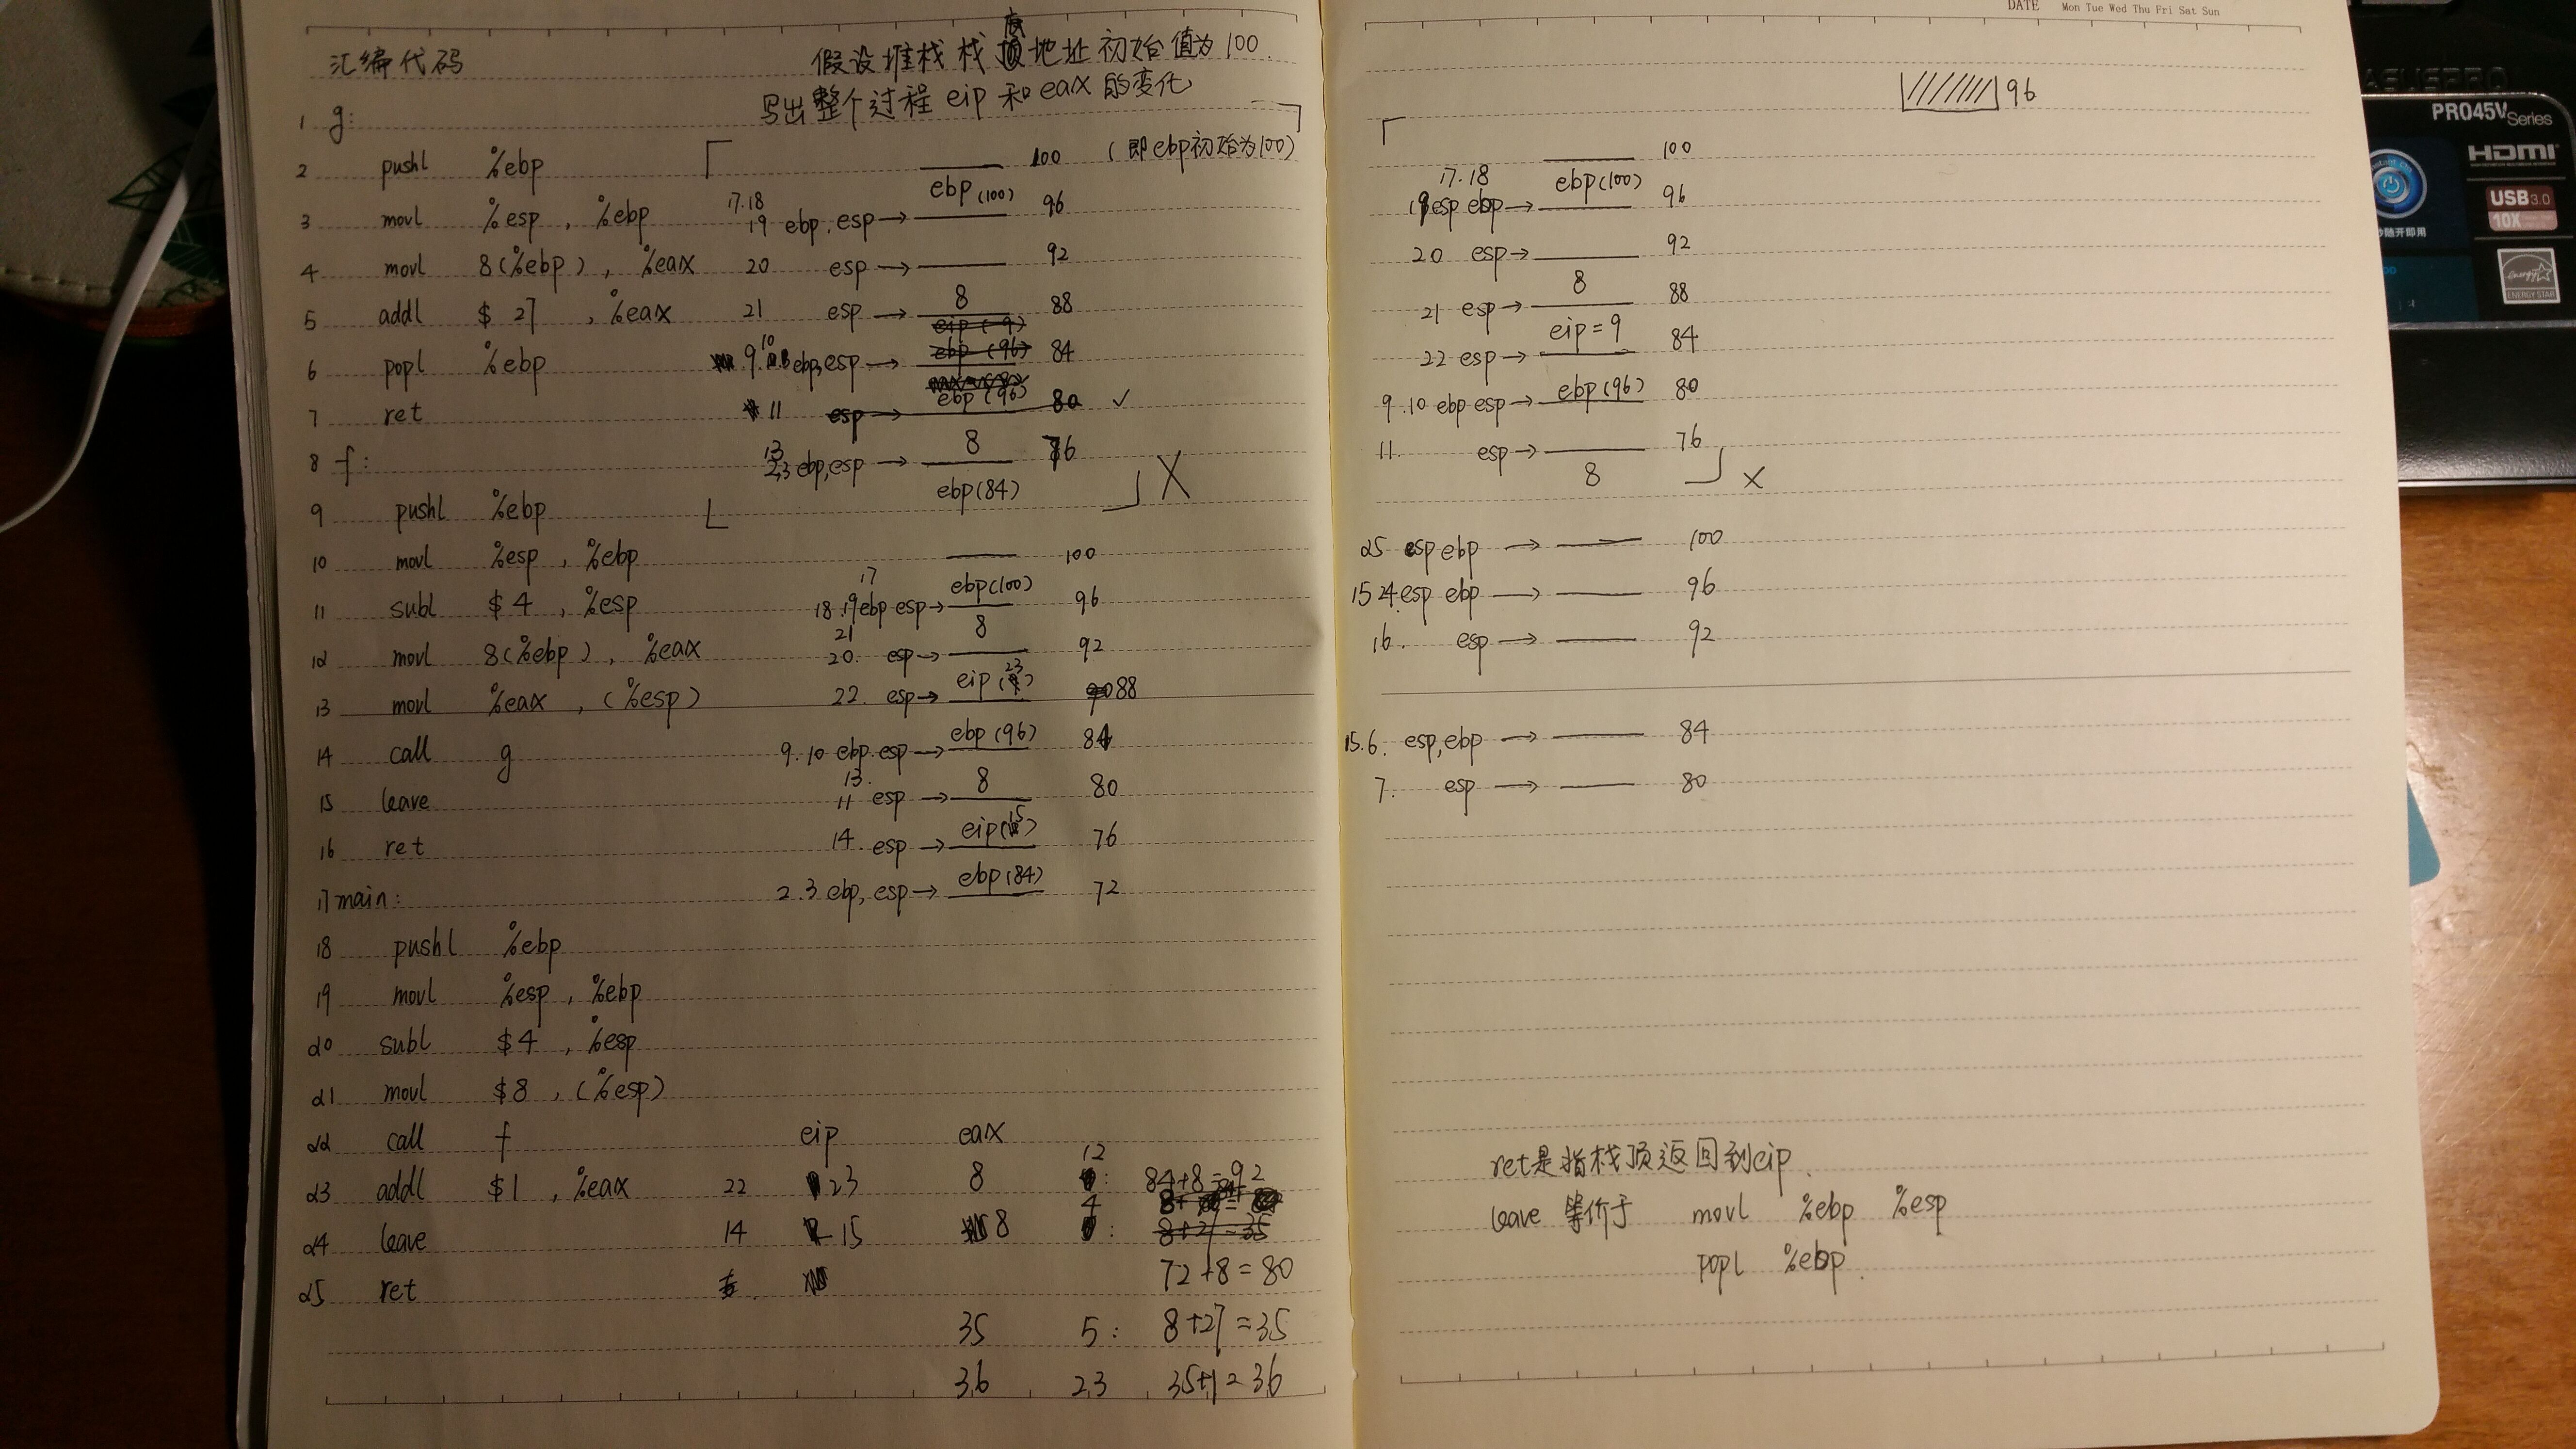 汇编代码
假设堆栈栈底地址初始值为100.
写出整个过程eip和eax的变化
1 g:
2 pushl %ebp
3 movl %esp , %ebp
4 movl 8(%ebp) , %eax
5 addl $ 27 , %eax
6 popl %ebp
7 ret
8 f:
9 pushl %ebp
10 movl %esp , %ebp
11 subl $4 , %esp
12 movl 8(%ebp) , %eax
13 movl %eax , (%esp)
14 call g
15 leave
16 ret
17 main:
18 pushl %ebp
19 movl %esp , %ebp
20 subl $4 , %esp
21 movl $8 , (%esp)
22 call f
23 addl $1 , %eax
24 leave
25 ret
100 (即ebp初始为100)
ebp(100)
17.18
19 ebp.esp→ 96
20 esp→ 92
8
21 esp→ 88
eip(9)
ebp(96)
9.10 ebp,esp→ 84
ebp(96)
11 esp→ 80 ✓
8
13
2,3 ebp,esp→ 76
ebp(84)
X
100
17 ebp(100)
18.19 ebp esp→ 96
21 8
20. esp→ 92
eip(23)
22. esp→ 88
ebp(96)
9.10 ebp.esp→ 84
13. 8
11 esp→ 80
eip(15)
14. esp→ 76
ebp(84)
2.3 ebp, esp→ 72
eip eax
12
22 23 8 : 84+8=92
4
14 15 8 : 8+27=35
72+8=80
35 5: 8+27=35
36 23 35+1=36
DATE Mon Tue Wed Thu Fri Sat Sun
96
100
17.18 ebp(100)
19 esp ebp→ 96
20 esp→ 92
8
21 esp→ 88
eip=9
22 esp→ 84
ebp(96)
9.10 ebp esp→ 80
11. esp→ 76
8
X
25 esp ebp → 100
15 24.esp ebp → 96
16. esp → 92
15.6. esp,ebp → 84
7. esp → 80
ret是指栈顶返回到eip.
leave 等价于 movl %ebp %esp
popl %ebp.
ASUSPRO
PRO45V Series
HDMI
USB3.0
10X
秒随开即用
energy
ENERGY STAR